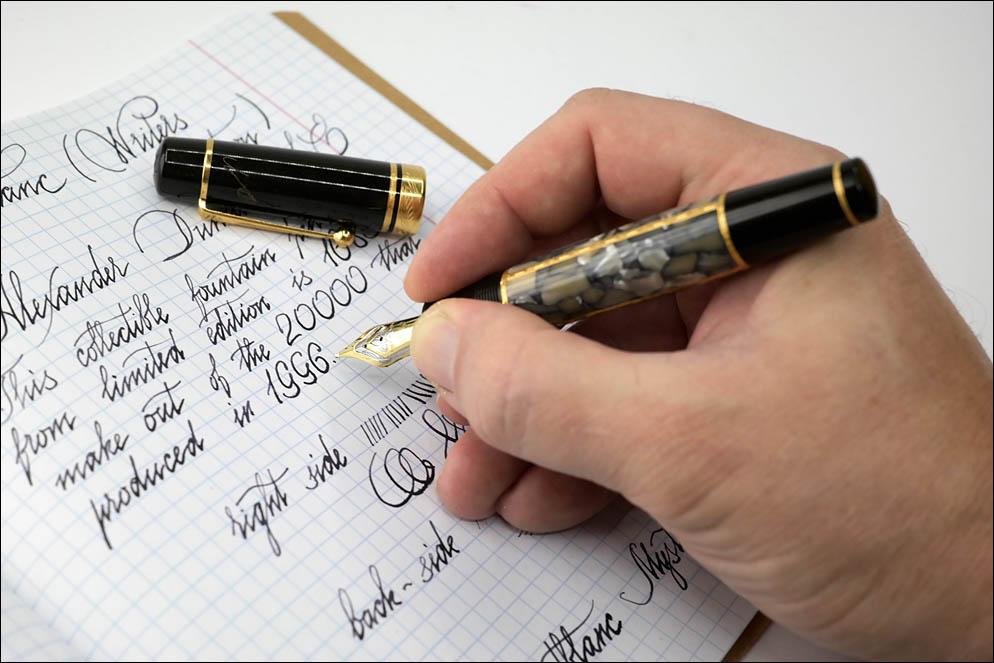 (Writers
Alexander
This collectible fountain
from limited edition is
make out of the 20000 that
produced in 1996.
right side
back-side